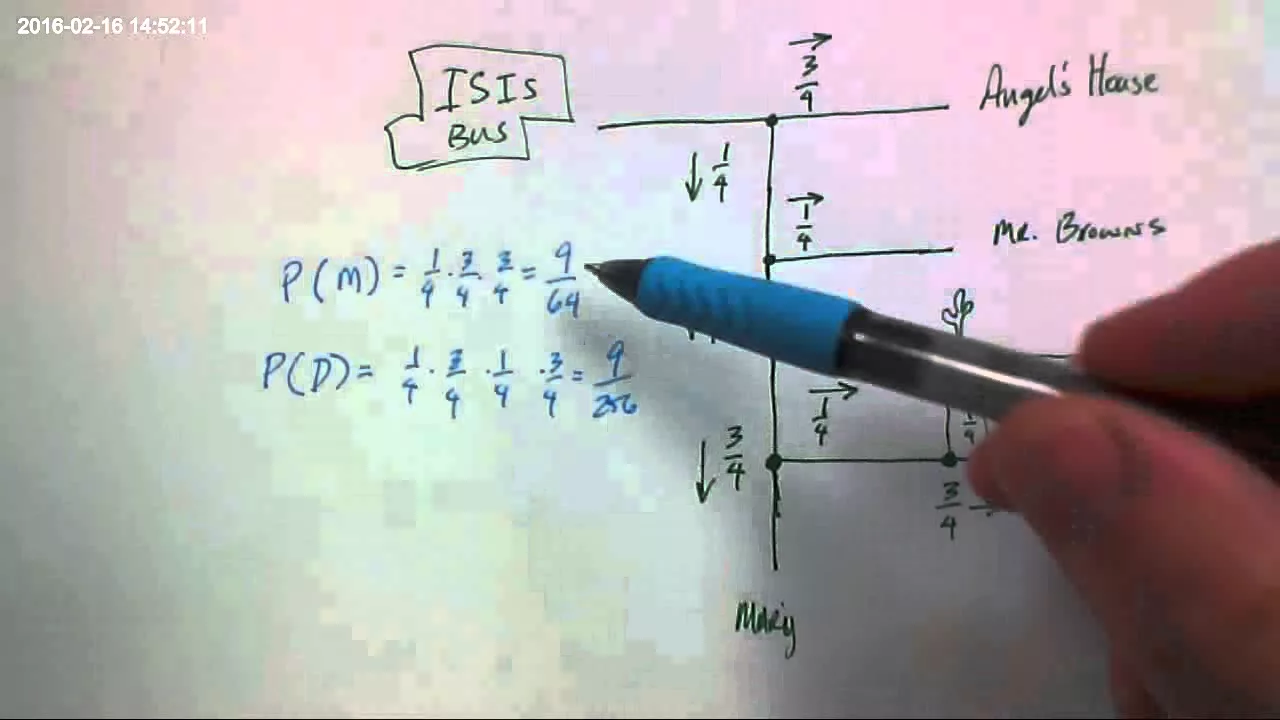 2016-02-16 14:52:11
ISIs
BUS
→
3/4
Angel's House
↓ 1/4
→
1/4
Mr. Browns
P(M) = 1/4 · 3/4 · 3/4 = 9/64
P(D) = 1/4 · 3/4 · 1/4 · 3/4 = 9/256
→
1/4
1/4
↓ 3/4
3/4 →
Mary